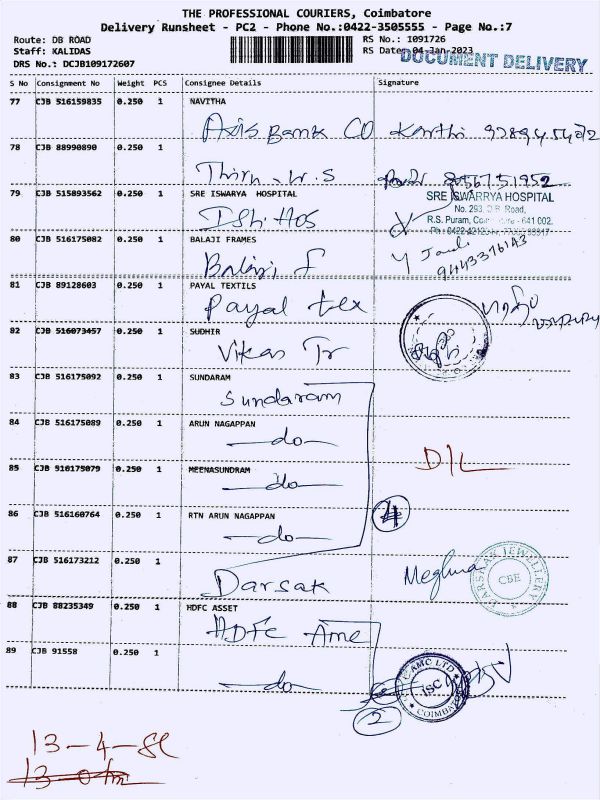 THE PROFESSIONAL COURIERS, Coimbatore
Delivery Runsheet - PC2 - Phone No.:0422-3505555 - Page No.:7
Route: DB ROAD
RS No.: 1091726
Staff: KALIDAS
RS Date: 04-Jan-2023
DOCUMENT DELIVERY
DRS No.: DCJB109172607
S No Consignment No Weight PCS Consignee Details Signature
77 CJB 516159835 0.250 1 NAVITHA
Axis Bank CO Karthi
78 CJB 88990890 0.250 1
79 CJB 515893562 0.250 1 SRE ISWARYA HOSPITAL
SRE ISWARRYA HOSPITAL
No. 293, D.B. Road,
R.S. Puram, - 641 002.
80 CJB 516175082 0.250 1 BALAJI FRAMES
Balaji f
9443376143
81 CJB 89128603 0.250 1 PAYAL TEXTILS
Payal tex
82 CJB 516073457 0.250 1 SUDHIR
Vikas Tr
83 CJB 516175092 0.250 1 SUNDARAM
Sundaram
84 CJB 516175089 0.250 1 ARUN NAGAPPAN
-do-
D/L
85 CJB 516175079 0.250 1 MEENASUNDRAM
-do-
86 CJB 516160764 0.250 1 RTN ARUN NAGAPPAN
4
-do-
87 CJB 516173212 0.250 1
Darsak
Meghna
JEWELLERY
CBE
88 CJB 88235349 0.250 1 HDFC ASSET
HDFC Amc
89 CJB 91558 0.250 1
-do-
AMC LTD
ISC
COIMBATORE
2